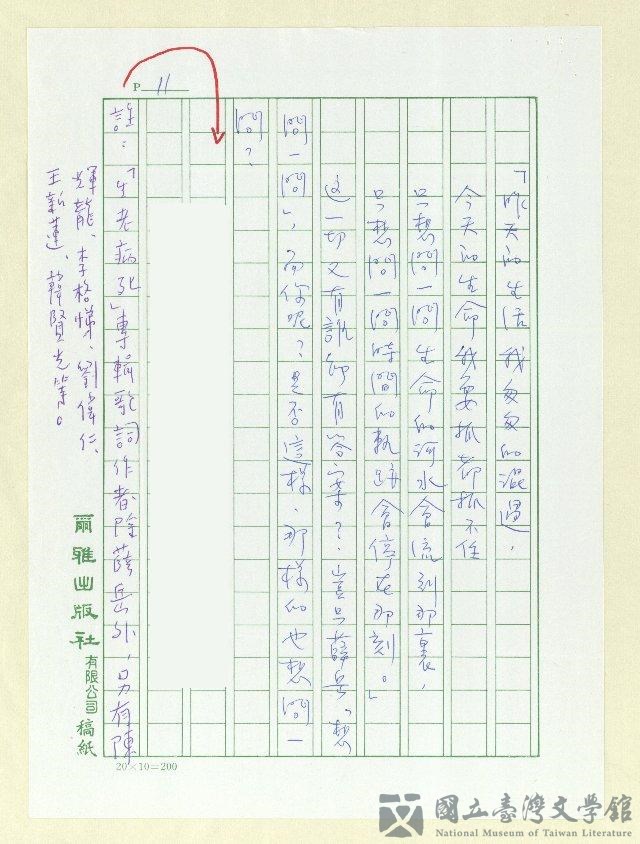 P 11
「昨天的生活我匆匆的混過，
今天的生命我要抓都抓不住
只想問一問生命的河水會流到那裏，
只想問一問時間的軌跡會停在那刻。」
這一切又有誰能有答案？豈只薛岳「想
問一問」，而你呢？是否這樣、那樣的也想問一
問？
註：「生老病死」專輯歌詞作者除薛岳外，另有陳
輝龍、李格悌、劉偉仁、
王新蓮、韓賢光等。
爾雅出版社有限公司稿紙
20×10=200
國立臺灣文學館
National Museum of Taiwan Literature